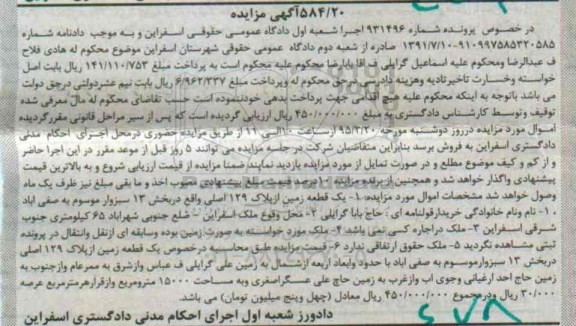 ۵۸۴/۲۰آگهی مزایده
در خصوص پرونده شماره ۹۳۱۴۹۶ اجرا شعبه اول دادگاه عمومی حقوقی اسفراین و به موجب دادنامه شماره
۹۱۰۹۹۷۵۸۵۳۲۰۵۸۵-۱۳۹۱/۷/۱۰ صادره از شعبه دوم دادگاه عمومی حقوقی شهرستان اسفراین موضوع محکوم له هادی فلاح
ف عبدالرضا ومحکوم علیه اسماعیل گرایلی ف اقا بابارضا محکوم علیه محکوم است به پرداخت مبلغ ۱۴۱/۱۱۰/۷۵۳ ریال بابت اصل
خواسته وخسارت تاخیرتادیه وهزینه دادرسی درحق محکوم له وپرداخت مبلغ ۶/۹۶۲/۳۳۷ ریال بابت نیم عشردولتی درحق دولت
می باشد باتوجه به اینکه محکوم علیه هیچ اقدامی جهت پرداخت بدهی خودننموده است حسب تقاضای محکوم له مال معرفی شده
توقیف وتوسط کارشناس دادگستری به مبلغ ۴۵۰/۰۰۰/۰۰۰ ریال ارزیابی گردیده است که پس از سیر مراحل قانونی مقررگردیده
اموال مورد مزایده درروز دوشنبه مورخه ۹۵/۲/۲۰ ازساعت ۱۰الی ۱۱ از طریق مزایده حضوری درمحل اجرای احکام مدنی
دادگستری اسفراین به فروش برسد بنابراین متقاضیان شرکت در جلسه مزایده می توانند ۵ روز قبل از موعد مقرر در این اجرا حاضر
و از کم و کیف موضوع مطلع و در صورت تمایل از مورد مزایده بازدید نمایند. ضمنا مزایده از قیمت ارزیابی شروع و به بالاترین قیمت
پیشنهادی واگذار خواهد شد و همچنین از برنده مزایده ۱۰درصد قیمت مبلغ پیشنهادی مصوب اخذ و ما بقی مبلغ نیز ظرف یک ماه
وصول خواهد شد مشخصات اموال مورد مزایده: ۱- یک قطعه زمین ازپلاک ۱۳۹ اصلی واقع دربخش ۱۳ سبزوار موسوم به صفی اباد
۱۰- نام ونام خانوادگی خریدارقولنامه ای : حاج بابا گرایلی ۲- محل وقوع ملک اسفراین - ضلع جنوبی شهراباد ۶۵ کیلومتری جنوب
شرقی اسفراین ۳- ملک دراجاره کسی نمی باشد ۴- ملک مورد خواسته به صورت زمین بوده وسابقه ای ازنقل وانتقال در پرونده
ثبتی مشاهده نگردید ۵- ملک حقوق ارتفاقی ندارد ۶- قیمت مزایده طبق محاسبه درخصوص یک قطعه زمین ازپلاک ۱۳۹ اصلی
دربخش ۱۳ سبزوارموسوم به صفی اباد با حدود وابعاد اربعه ازشمال به زمین علی گرایلی ف عباس وازشرق به ممرعام وازجنوب به
زمین حاج احد ارغیانی وجوی اب وازغرب به زمین حاج علی عسگراصغری وبه مساحت ۱۵۰۰۰ مترومربع وازقرارهرمترمربع عرصه
۳۰/۰۰۰ ریال ودرمجموع ۴۵۰/۰۰۰/۰۰۰ ریال معادل (چهل وپنج میلیون تومان) می باشد.
دادورز شعبه اول اجرای احکام مدنی دادگستری اسفراین